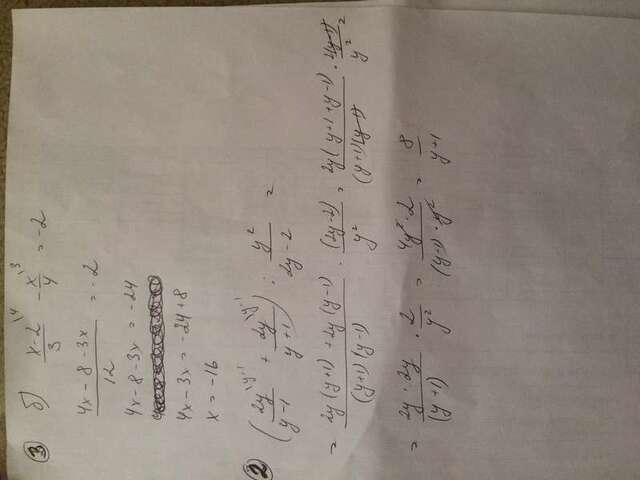 ③ б) (x-2)/3 \4 - x/4 \3 = -2
(4x - 8 - 3x)/12 = -2
4x - 8 - 3x = -24
4x - 3x = -24 + 8
x = -16
② (2y/(y-1) \y-1 + 2y/(y+1) \y-1) : y²/(2y-2) =
= (2y(y+1) + 2y(y-1))/((y+1)(y-1)) · (2y-2)/y² = 2y(y+1+y-1)/((y+1)(y-1)) · 2(y-1)/y² =
= (2y · 2y)/(y+1) · 2/y² = (4y² · 2)/((y+1) · y²) = 8/(y+1)